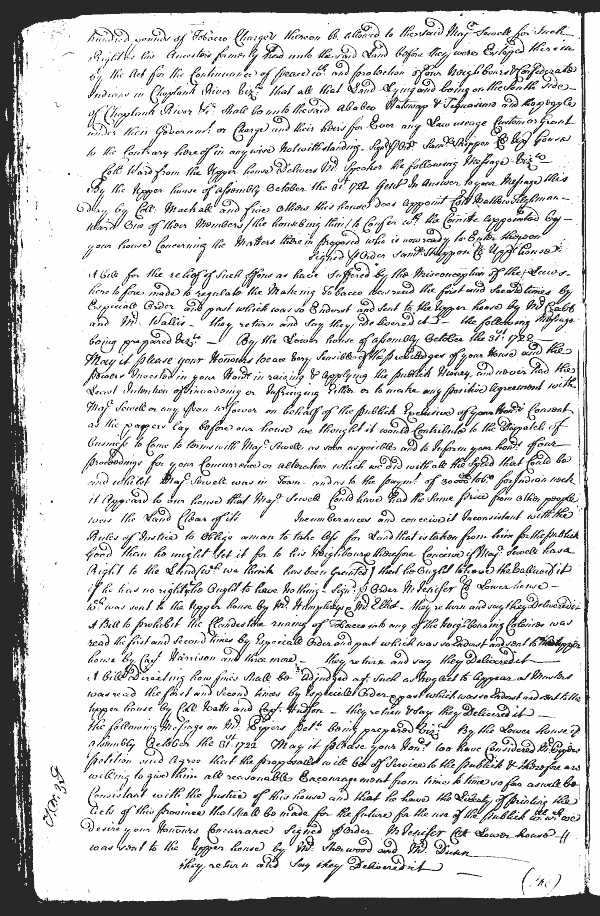 hundred pounds of Tobacco Charges thereon be allowed to the said Maj.r Sewell for Such
Right as his Ancestors formerly had unto the said Land before they were Enlarged thereon
by the Act for the Continuance of peace with and protection of our Neighbours & Confederate
Indians in Choptank River Viz.t that all that Land Lying and being on the South Side
of Choptank River &c. Shall be unto the said Ababco Hatswap & Tequassimo and the people
under their Governm.t or Charge and their heirs for Ever any Law usage Custom or Grant
to the Contrary hereof in any wise Notwithstanding. Sign'd p Ord.r Sam.l Skippon Cl. Upp.r house
Coll. Ward from the Upper house Delivers Mr. Speaker the following Message Viz.t
By the Upper house of Assembly October the 31st 1722 Gent. In Answer to your Message this
day by Coll. Mackall and five Others this house does appoint Coll. Matthew Tilghman
Ward One of their Members (the house being thin) to Confer wth. the Comittee appointed by
your house Concerning the Matters therein proposed who is now ready to Enter thereon
Signed p Order Sam.l Skippon Cl. Upp.r house
A Bill for the relief of Such p'sons as have Suffered by the Misconception of the Laws
heretofore made to regulate the Making Tobacco was read the first and Second times by
Especiall Order and past which was so Endorst and sent to the Upper house by Mr.
and Mr. Wallis they return and say they delivered it the following Message
being prepared Viz.t By the Lower house of Assembly October the 31st 1722
May it please your Honours We are very sensible of the priviledges of your House and the
powers Invested in your Hon.rs in raising & Applying the publick Money, and never had the
Least Intention of invading or Infringing Either or to make any positive Agreement with
Maj.r Sewell or any p'son whatever on behalf of the publick Exclusive of your Hon.rs Consent
as the papers lay before our house we thought it would Contribute to the Dispatch of
business to Come to terms with Maj.r Sewell as soon as possible and to Inform your hon.rs of our
proceedings for your Concurrence or alteration which we did with all the Speed that Could be
and whilst Maj.r Sewell was in Town. and as to the paym.t of for Indian neck
it Appeared to our house that Maj.r Sewell Could have had the Same price from other people
was the Land Clear of its Incumberances and conceive it Inconsistent with the
Rules of Justice to Oblige a man to take less for Land that is taken from him for the publick
Good than he might Get it for to his Neighbours therefore Conceive if Maj.r Sewell has a
Right to the Land (which we think has been Granted) that he Ought to have the Value of it
if he has no right he Ought to have Nothing. Sign'd p Order M Jenifer Cl. Lower house
wch. was sent to the Upper house by Mr. Humphreys & Mr. Elliot. they return and say they Delivered it
A Bill to prohibit the Clandestine runing of Tobacco into any of the Neighbouring Colonies was
read the first and Second times by Especiall Order and past which was so Endorst and sent to the Upper
house by Cap.t Harrison and three more they return and say they Delivered it
A bill Directing how fines Shall be adjudged ag.t Such as Neglect to Appear at Musters
was read the first and Second times by Especiall Order & past which was so Endorst and sent to the
Upper house by Coll. Watts and Cap.t Hudson they return & Say they Delivered it
the following Message on Mr. Pet.n being prepared Viz.t By the Lower house of
Assembly October the 31st 1722 May it please your Hon.rs We have Considered Mr.
petition and Agree that the proposalls will be of Service to the publick & therefore are
willing to give him all reasonable Encouragement from time to time so far as will be
Consistent with the Justice of this house and that he have the Liberty of printing the
Acts of this province that shall be made for the future for the use of the publick to wch. we
desire your Honours Concurrance Signed p Order M Jenifer Clk Lower house
was sent to the Upper house by Mr. Sherwood and Mr. Dunn
they return and Say they Delivered it